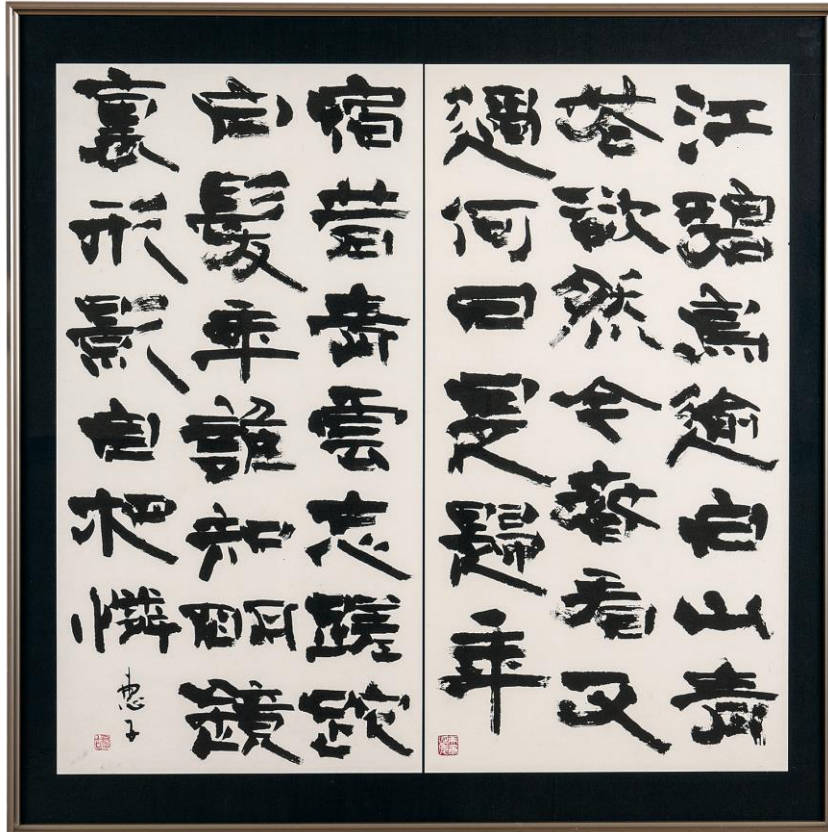 江碧鳥逾白山青
花欲然今春看又
過何日是歸年
宿昔青雲志蹉跎
白髮年誰知明鏡
裏形影自相憐
恵子